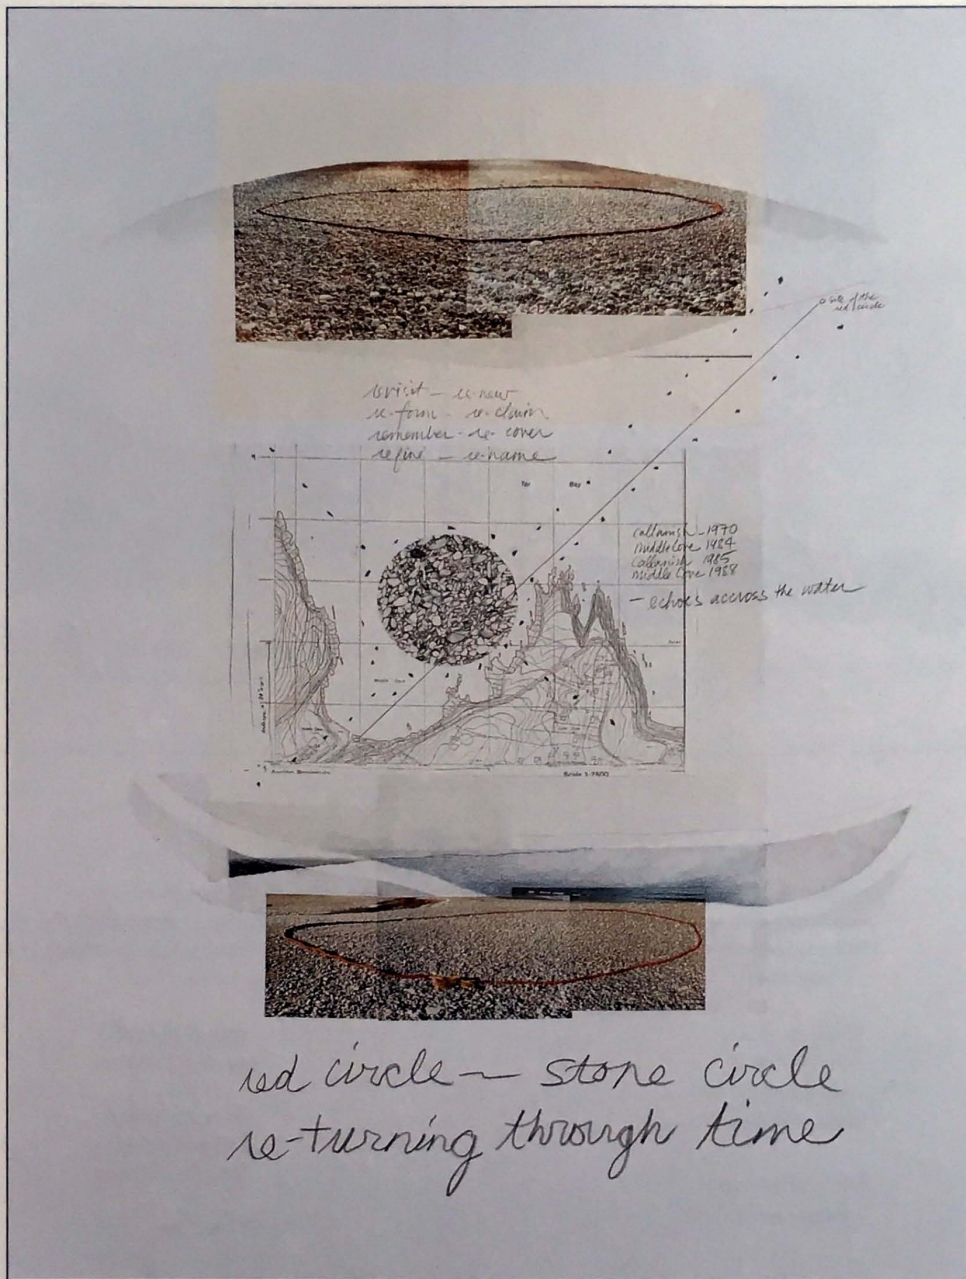 site of the
red circle
revisit - re-new
re-form - re-claim
remember - re-cover
refine - re-name
Tor Bay
Callanish - 1970
Middle Cove 1984
Callanish 1985
Middle Cove 1988
- echoes accross the water
Middle Cove
Scale 1:2500
red circle - stone circle
re-turning through time